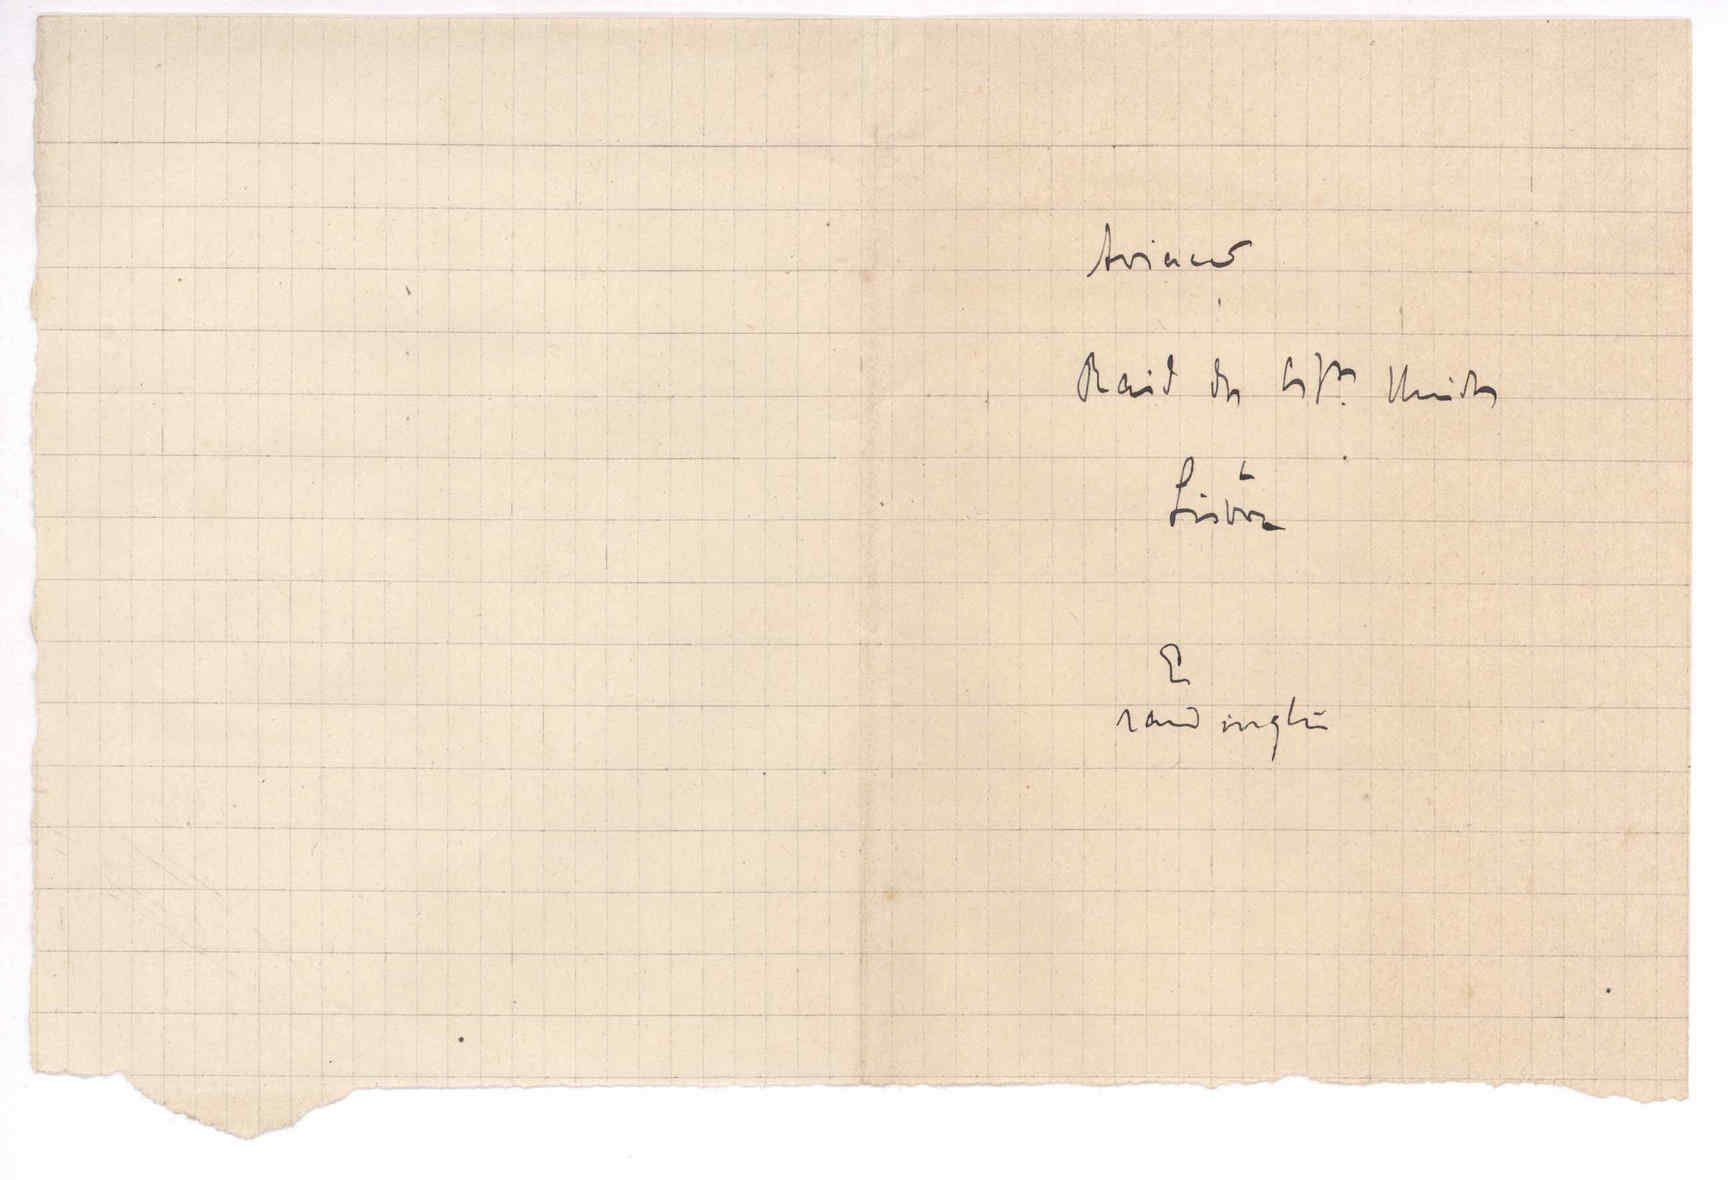 Aviação
Raid dos Estos. Unidos
Lisboa
E
raid inglês